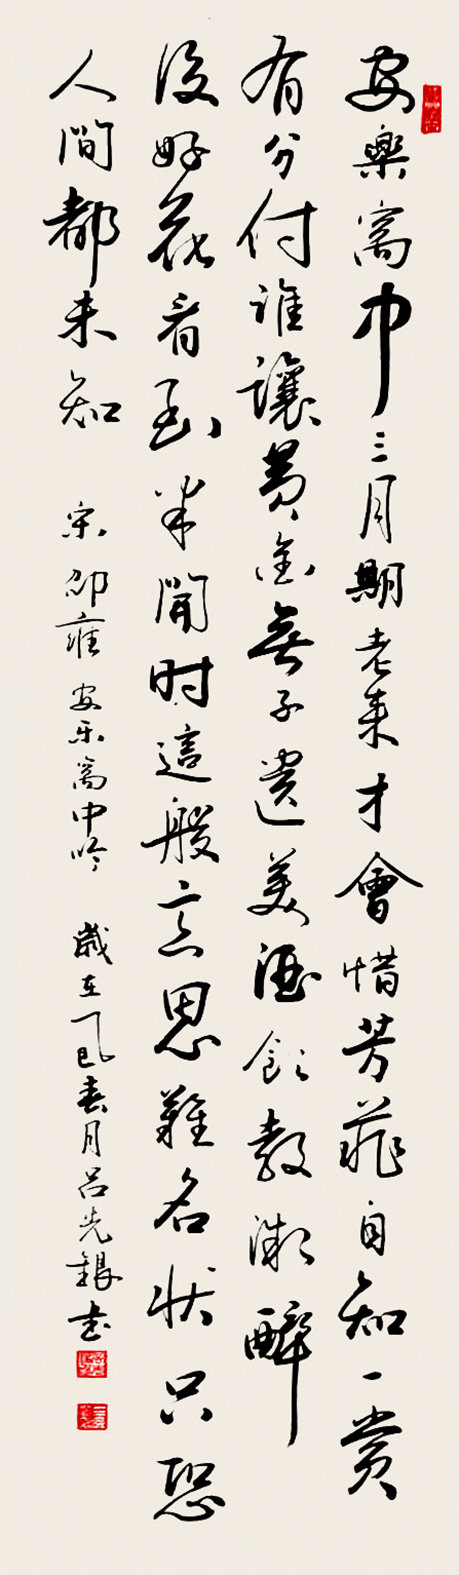 安樂窩中三月期老来才會惜芳菲自知一赏
有分付谁讓黄金無子遗美酒飲教微醉
後好花看到半開时這般意思難名状只恐
人間都未知 宋邵雍安乐窝中吟 歲在乙巳春月吕先銀书